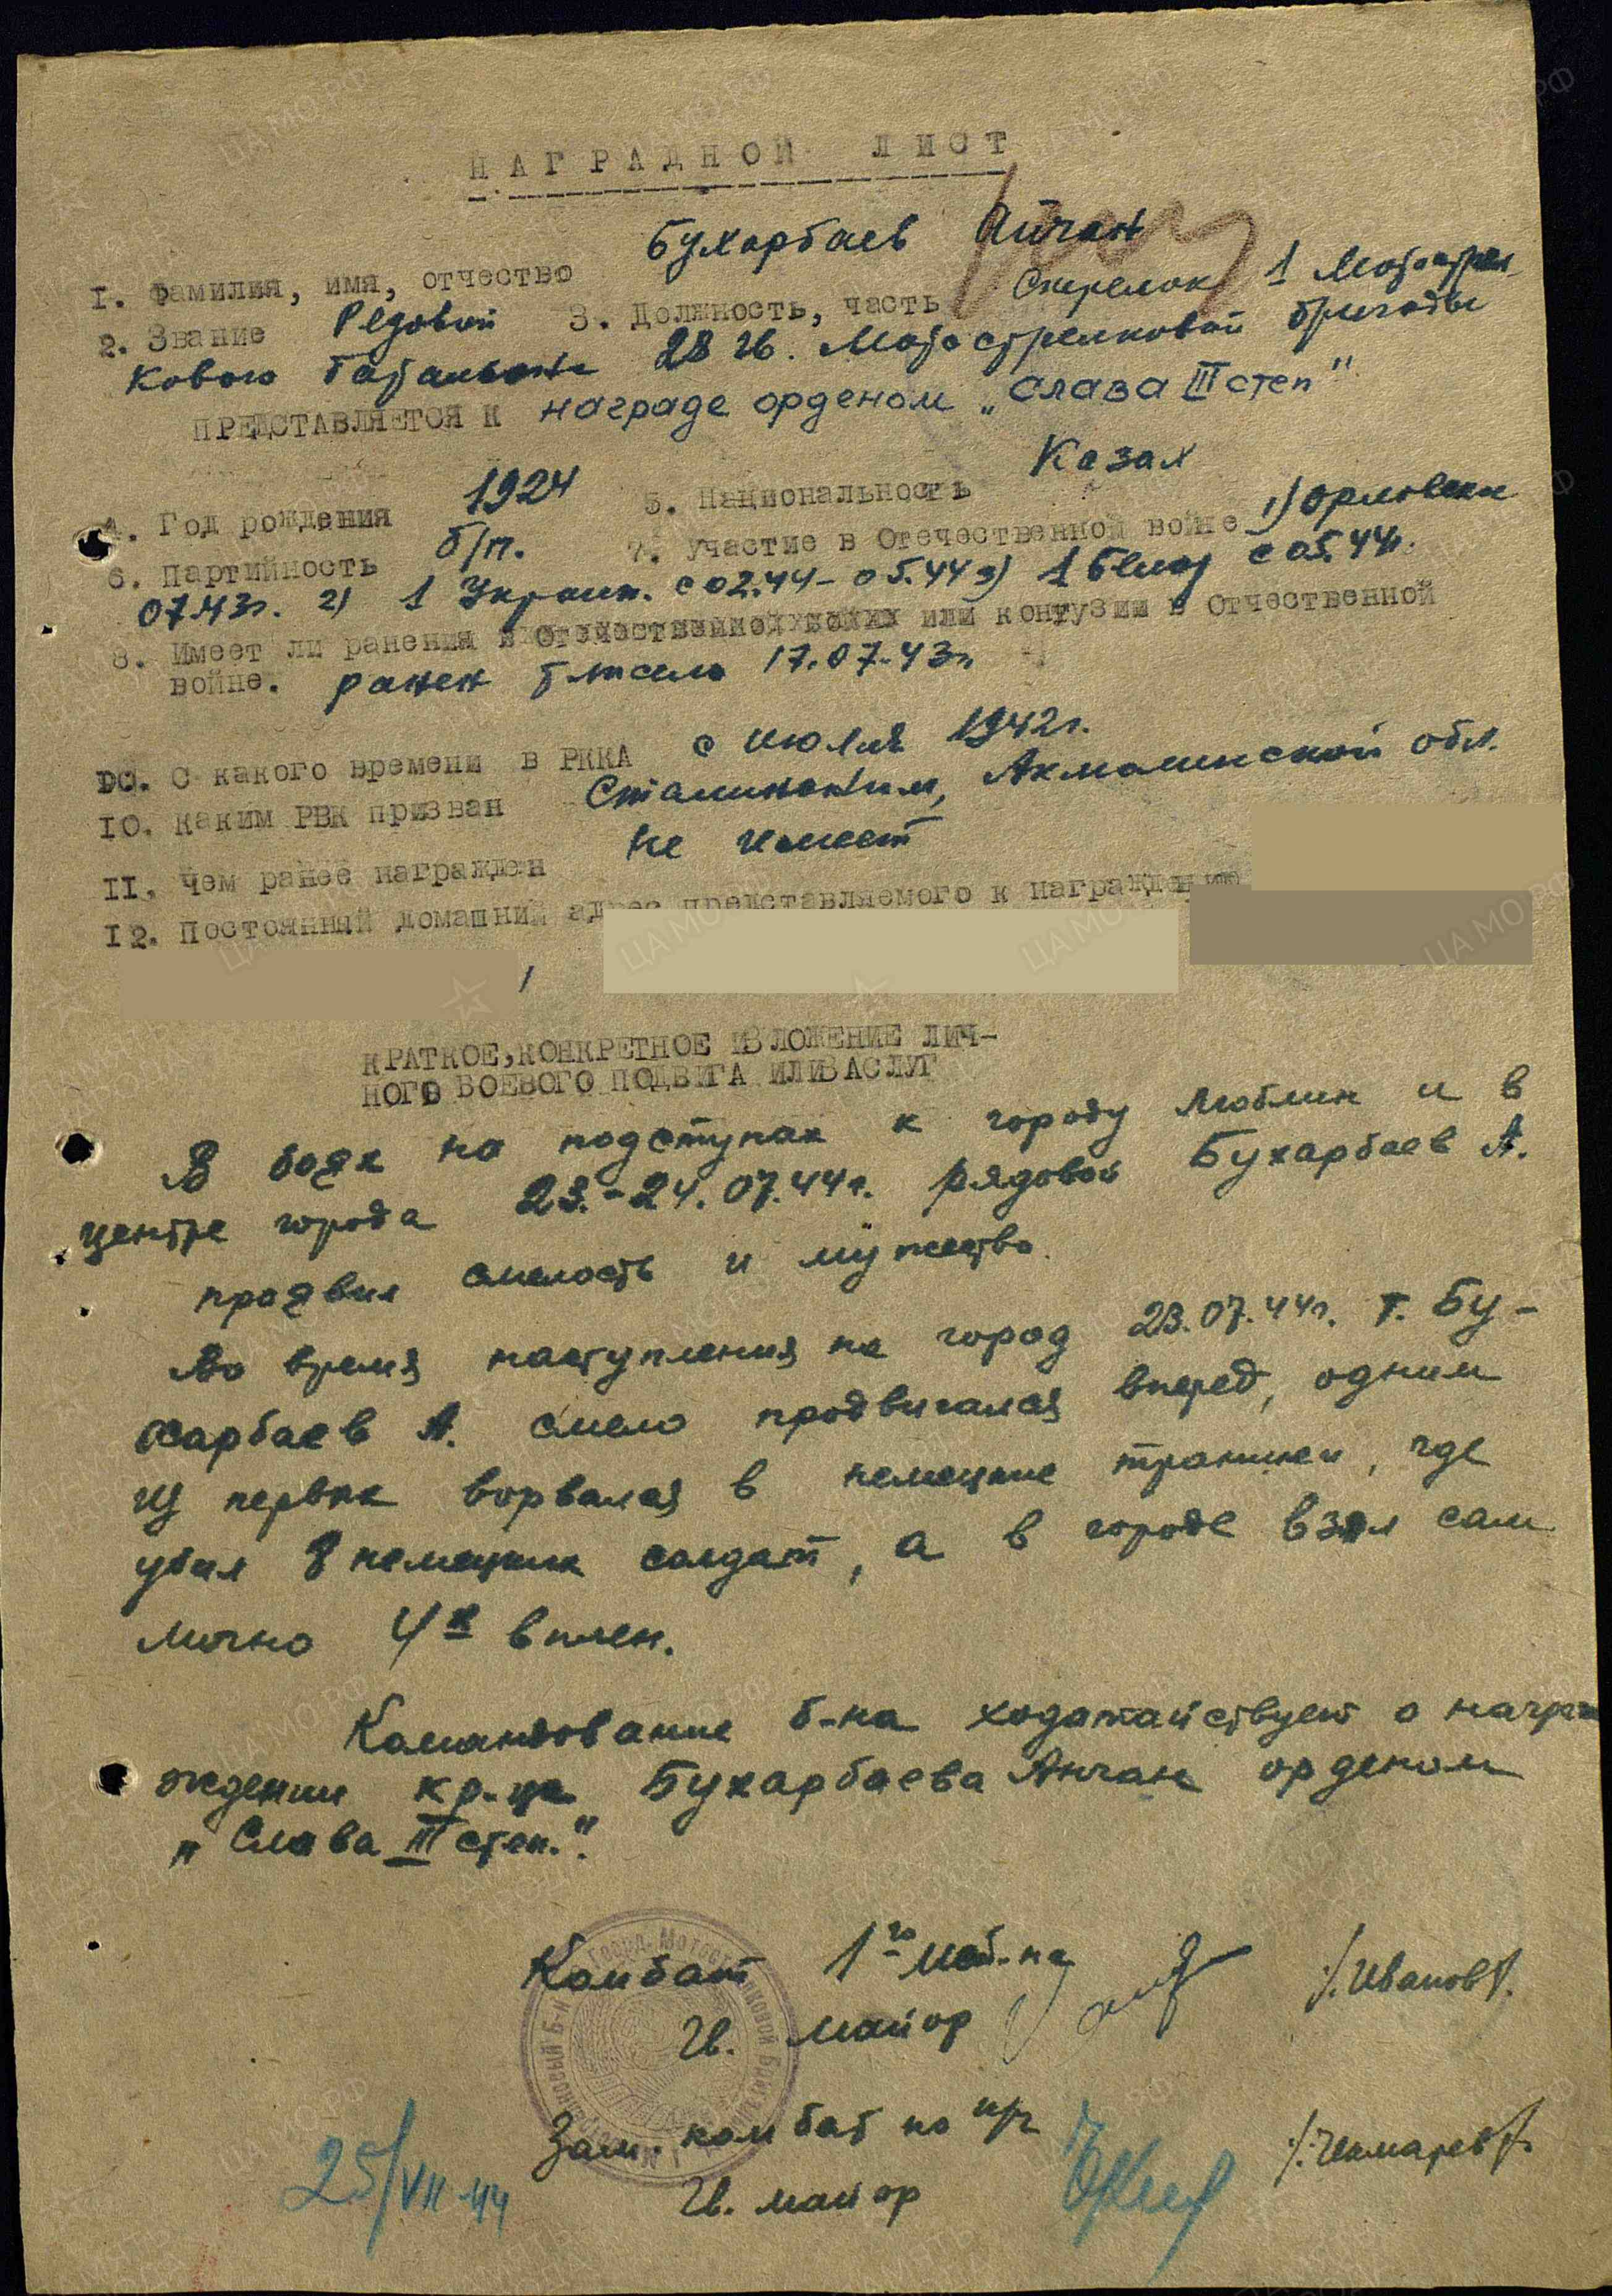 НАГРАДНОЙ ЛИСТ
Бухарбаев Айчан
1. Фамилия, имя, отчество
2. Звание Редовой 3. Должность, часть Стрелок 1 Мотострел
кового батальона 28 гв. Мотострелковой бригады
ПРЕДСТАВЛЯЕТСЯ К награде орденом „Слава III степ"
4. Год рождения 1924 5. Национальность Казах
6. Партийность б/п. 7. Участие в Отечественной войне 1) Орловски
07.43г. 2) 1 Украин. с 02.44 – 05.44 3) 1 Белор с 05.44г.
8. Имеет ли ранения или контузии в Отчественной
войне. ранен тяжело 17.07.43г.
С какого времени в РККА с июля 1942г.
10. Каким РВК призван Сталинским, Акмолинской обл.
11. Чем ранее награжден не имеет
12. Постоянный домашний адрес представляемого к награждению
КРАТКОЕ, КОНКРЕТНОЕ ИЗЛОЖЕНИЕ ЛИЧ-
НОГО БОЕВОГО ПОДВИГА ИЛИ ЗАСЛУГ
В боях на подступах к городу Люблин и в
центре города 23.-24.07.44г. рядовой Бухарбаев А.
проявил смелость и мужество.
Во время наступления на город 23.07.44г. т. Бу-
харбаев А. смело продвигался вперед, одним
из первых ворвался в немецкие траншеи, где
убил 8 немецких солдат, а в городе взял сам
лично 4х в плен.
Командование б-на ходатайствует о награ
ждении кр-ца Бухарбаева Айчан орденом
„Слава III степ.".
Комбат 1го мсб-на
Гв. майор /Иванов/.
Зам. комбат по п/ч
Гв. майор /Чекмарев/.
25/VII-44